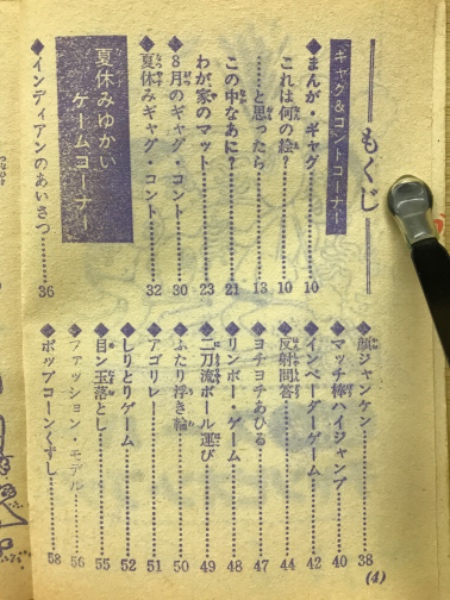 もくじ
ギャグ&コントコーナー
◆まんが・ギャグ……10
これは何の絵?……10
……と思ったら……13
この中なあに?……21
わが家のマット……23
◆8月のギャグ・コント……30
◆夏休みギャグ・コント……32
夏休みゆかい
ゲームコーナー
◆インディアンのあいさつ……36
◆顔ジャンケン……38
◆マッチ棒ハイジャンプ……40
◆インベーダーゲーム……42
◆反射問答……44
◆ヨチヨチあひる……47
◆リンボー・ゲーム……48
◆二刀流ボール運び……49
◆ふたり浮き輪……50
◆アゴリレー……51
◆しりとりゲーム……52
◆目ン玉落とし……55
◆ファッション・モデル……56
◆ポップコーンくずし……58
(4)